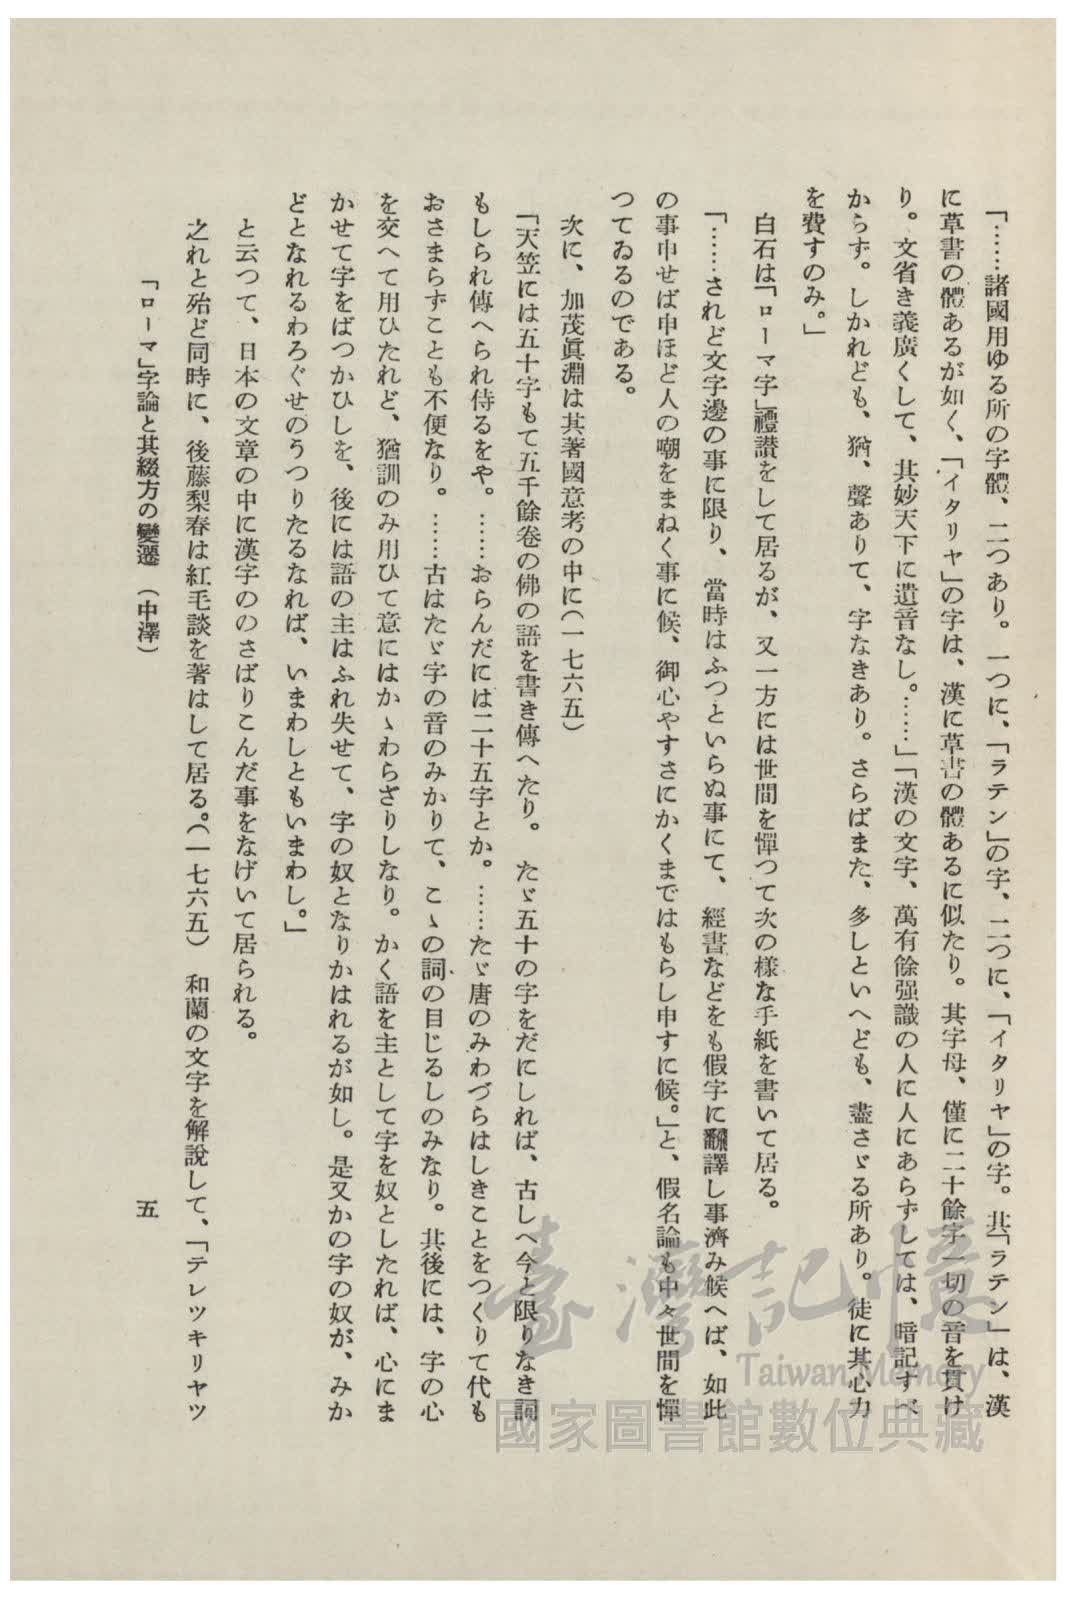 「……諸國用ゆる所の字體、二つあり。一つに、「ラテン」の字、二つに、「イタリヤ」の字。共「ラテン」は、漢
に草書の體あるが如く、「イタリヤ」の字は、漢に草書の體あるに似たり。其字母、僅に二十餘字一切の音を貫け
り。文省き義廣くして、其妙天下に遺音なし。……」「漢の文字、萬有餘强識の人に人にあらずしては、暗記すべ
からず。しかれども、猶、聲ありて、字なきあり。さらばまた、多しといへども、盡さゞる所あり。徒に其心力
を費すのみ。」
白石は「ローマ字」禮讃をして居るが、又一方には世間を憚つて次の樣な手紙を書いて居る。
「……されど文字邊の事に限り、當時はふつといらぬ事にて、經書などをも假字に飜譯し事濟み候へば、如此
の事申せば申ほど人の嘲をまねく事に候、御心やすさにかくまではもらし申すに候。」と、假名論も中々世間を憚
つてゐるのである。
次に、加茂眞淵は其著國意考の中に(一七六五)
「天竺には五十字もて五千餘卷の佛の語を書き傳へたり。たゞ五十の字をだにしれば、古しへ今と限りなき詞
もしられ傳へられ侍るをや。……おらんだには二十五字とか。……たゞ唐のみわづらはしきことをつくりて代も
おさまらずことも不便なり。……古はたゞ字の音のみかりて、こゝの詞の目じるしのみなり。共後には、字の心
を交へて用ひたれど、猶訓のみ用ひて意にはかゝわらざりしなり。かく語を主として字を奴としたれば、心にま
かせて字をばつかひしを、後には語の主はふれ失せて、字の奴となりかはれるが如し。是又かの字の奴が、みか
どとなれるわろぐせのうつりたるなれば、いまわしともいまわし。」
と云つて、日本の文章の中に漢字ののさばりこんだ事をなげいて居られる。
之れと殆ど同時に、後藤梨春は紅毛談を著はして居る。(一七六五)　和蘭の文字を解說して、「テレツキリヤツ
「ローマ」字論と其綴方の變遷 (中澤)
五
臺灣記憶
Taiwan Memory
國家圖書館數位典藏